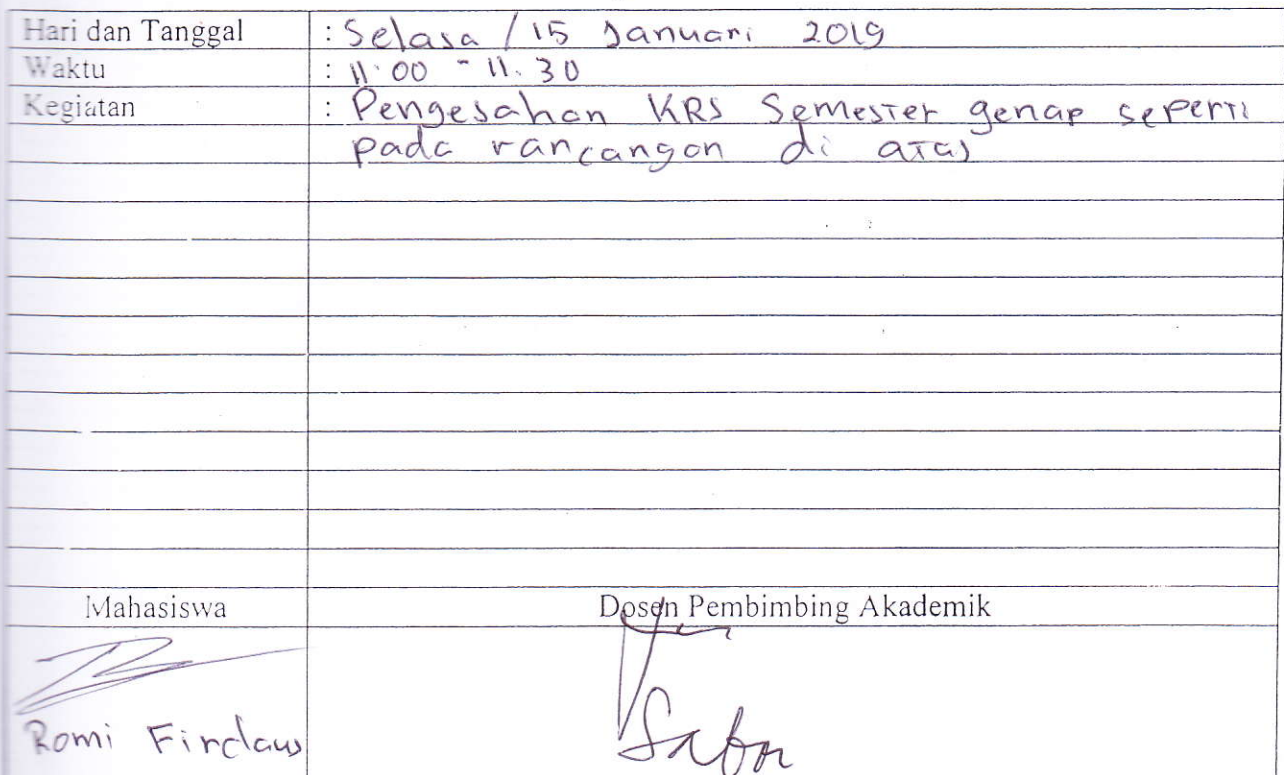 Hari dan Tanggal : Selasa / 15 Januari 2019
Waktu : 11.00 - 11.30
Kegiatan : Pengesahan KRS Semester genap seperti
pada rancangan di atas
Mahasiswa Dosen Pembimbing Akademik
Romi Firdaus